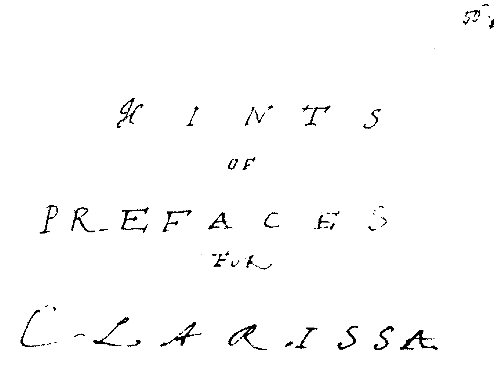 50
HINTS
OF
PREFACES
FOR
CLARISSA